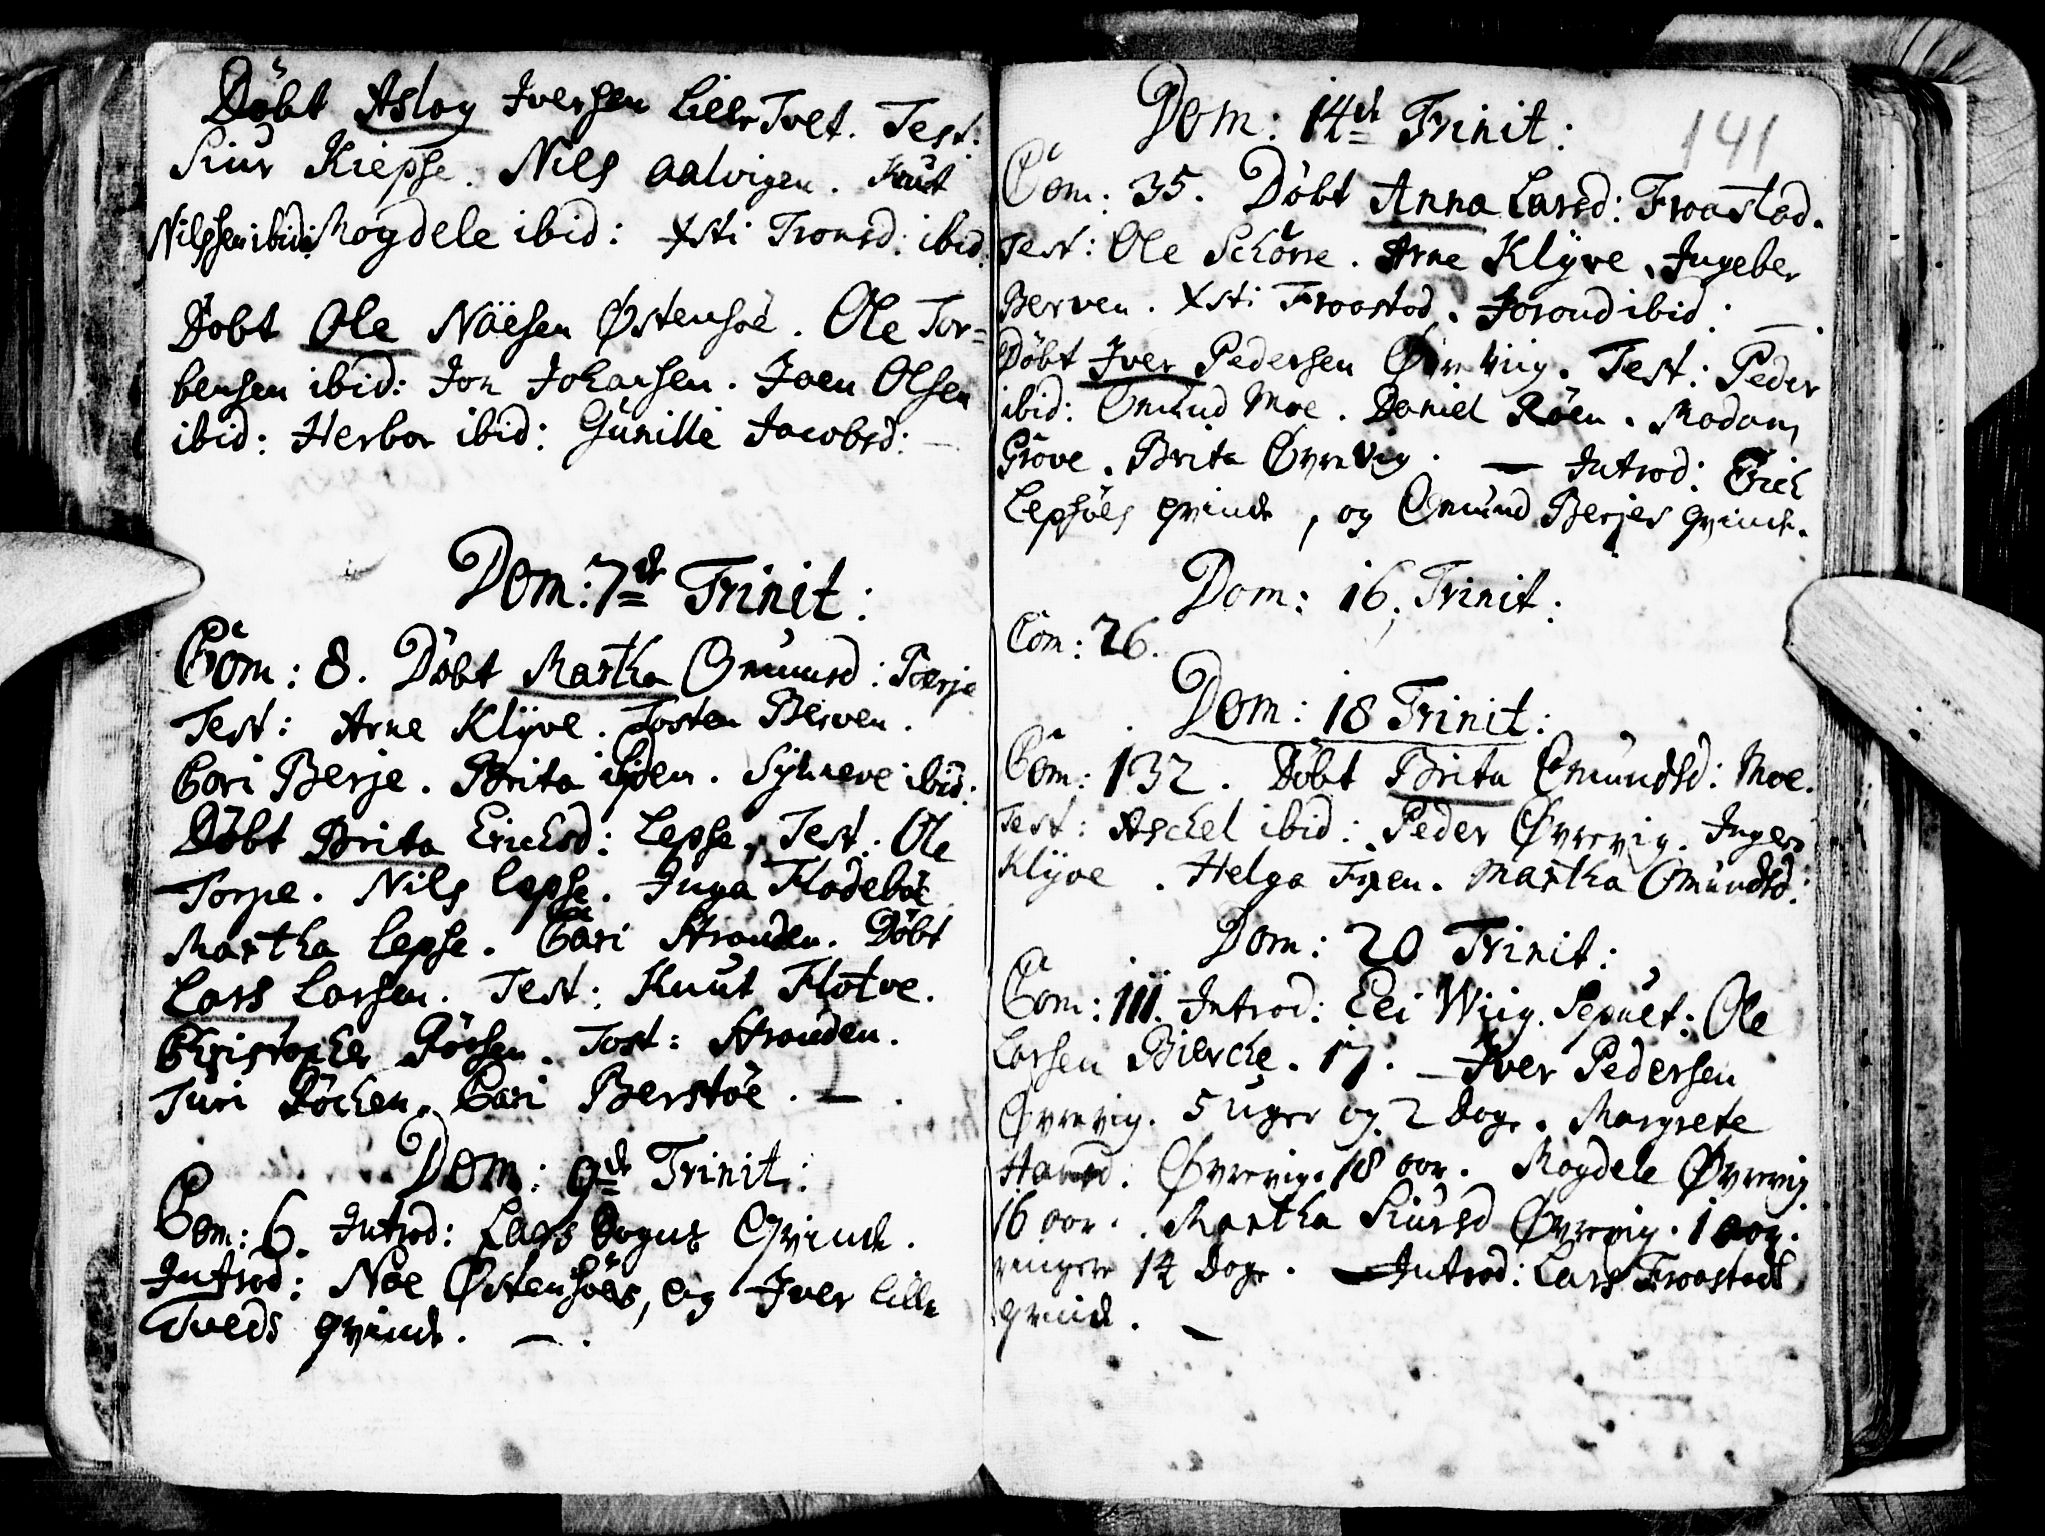 Döbt Aslog Iversen lille Tvet. Test:
Siur Kiepse. Nils Aalvigen. Knut
Nilssen ibid: Magdele ibid: Xsti Tronsd: ibid:
Döbt Ole Nöesen Östensöe. Ole Tor=
bensen ibid: Jon Johansen. Joen Olsen
ibid: Herbor ibid: Gunille Jacobsd: —
Dom: 7de Trinit:
Com: 8. Döbt Martha Omunsd: Berje
Test: Arne Klyve. Tosten Berven.
Cari Berje. Brita ibidem. Sÿneve ibid:
Döbt Brita Ericksd: Lepse. Test: Ole
Torpe. Nils Lepse. Inga Flodeböe
Martha Lepse. Cari Stranden. Döbt
Lars Larsen. Test: Knut Flotve.
Christopher Röesen. Tost: Stranden.
Turi Röcken. Cari Berstöe. — .
Dom: 9de Trinit:
Com: 6. Introd: Lars Qvinde.
Introd: Noe Östensöes, og Iver lille
Tveds qvinde. — .
141
Dom: 14de Trinit:
Com: 35. Döbt Anna Larsd: Froastad.
Test: Ole Schörre. Arne Klÿve. Ingeber
Berven. Xsti Froastad. Jorand ibid: — .
Döbt Iver Pedersen Øvreviig. Test: Peder
ibid: Omund Moe. Daniel Röen. Madam
Gröve. Brita Øvrevig. — Introd: Erich
Lepsöes qvinde, og Omund Berjes qvinde.
Dom: 16. Trinit:
Com: 26.
Dom: 18 Trinit:
Com: 132. Döbt Brita Omundsd: Moe.
Test: Aschel ibid: Peder Øvrevig. Ingeri
Klÿve. Helga Fixen. Martha Omundsd:
Dom: 20 Trinit:
Com: 111. Introd: Eli Wiig. Sepult: Ole
Larsen Biercke. 17. — Iver Pedersen
Øvrevig. 5 uger og 2 Dage. Margrete
Hansd: Øvrevig. 18 aar. Magdele Øvrevig
16 aar. Martha Siursd Øvrevig. 1 aar.
ringere 14 Dage. — Introd: Lars Froastads
qvinde. —